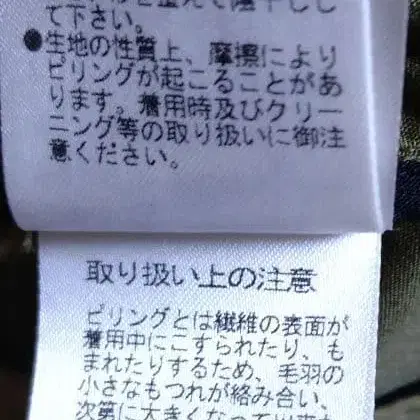 て下さい。
●生地の性質上、摩擦により
ピリングが起こることがあ
ります。着用時及びクリー
ニング等の取り扱いに御注
意ください。
取り扱い上の注意
ピリングとは繊維の表面が
着用中にこすられたり、も
まれたりするため、毛羽の
小さなもつれが絡み合い、
次第に大きくなって